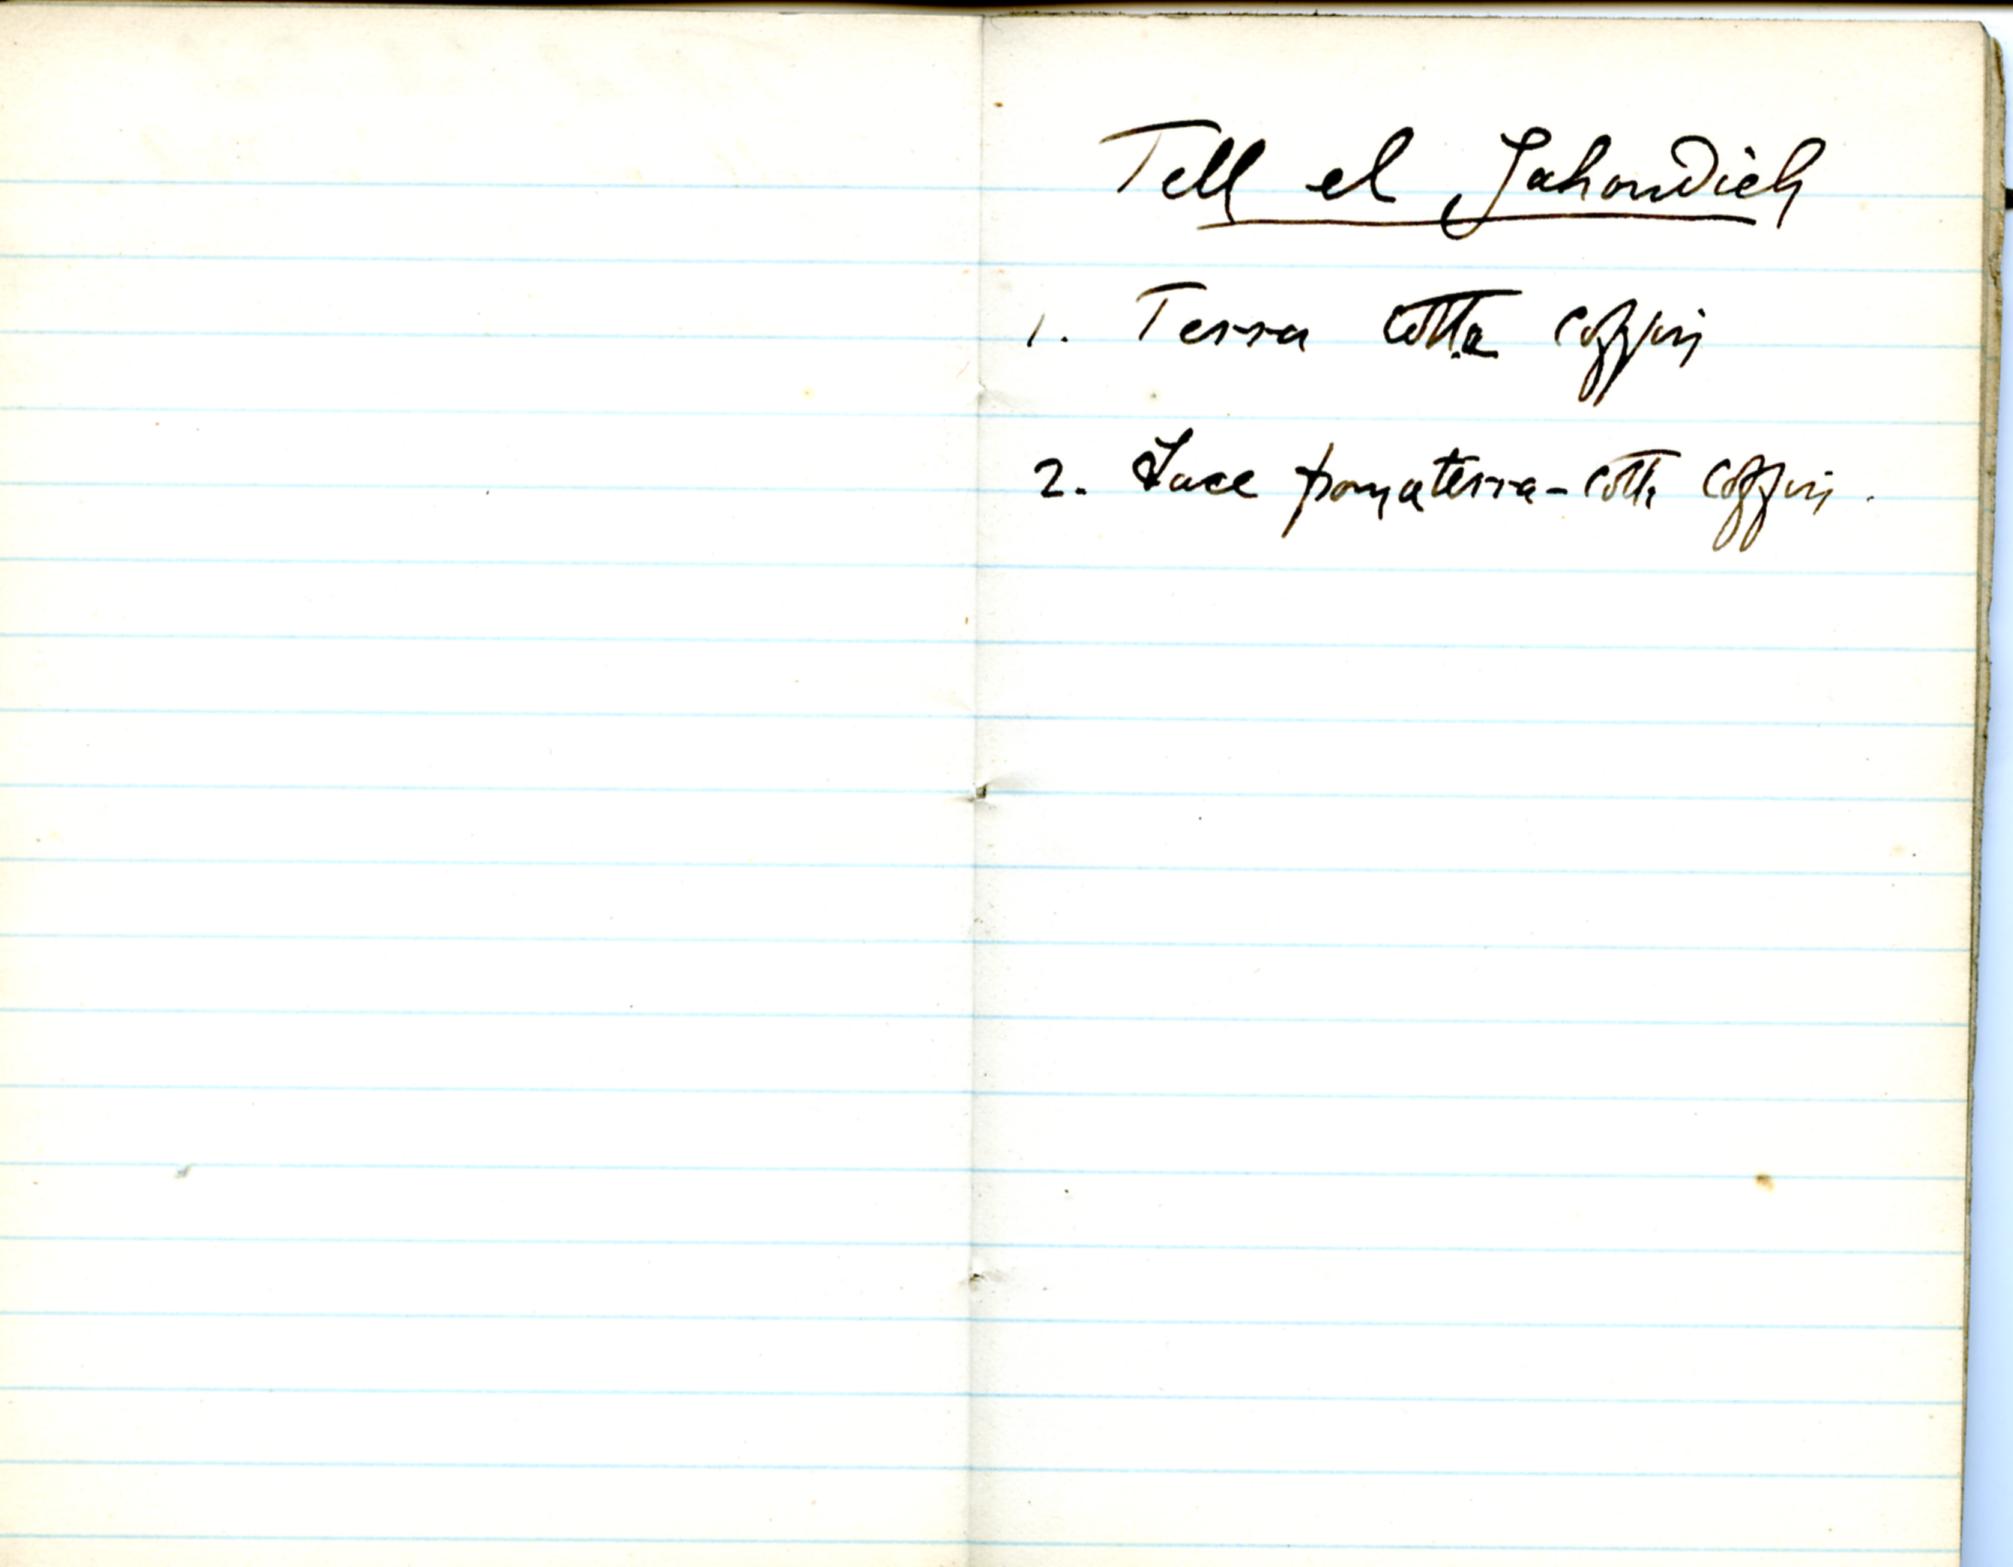 Tell el Jahoudieh
1. Terra cotta coffin
2. Face from a terra-cotta coffin.